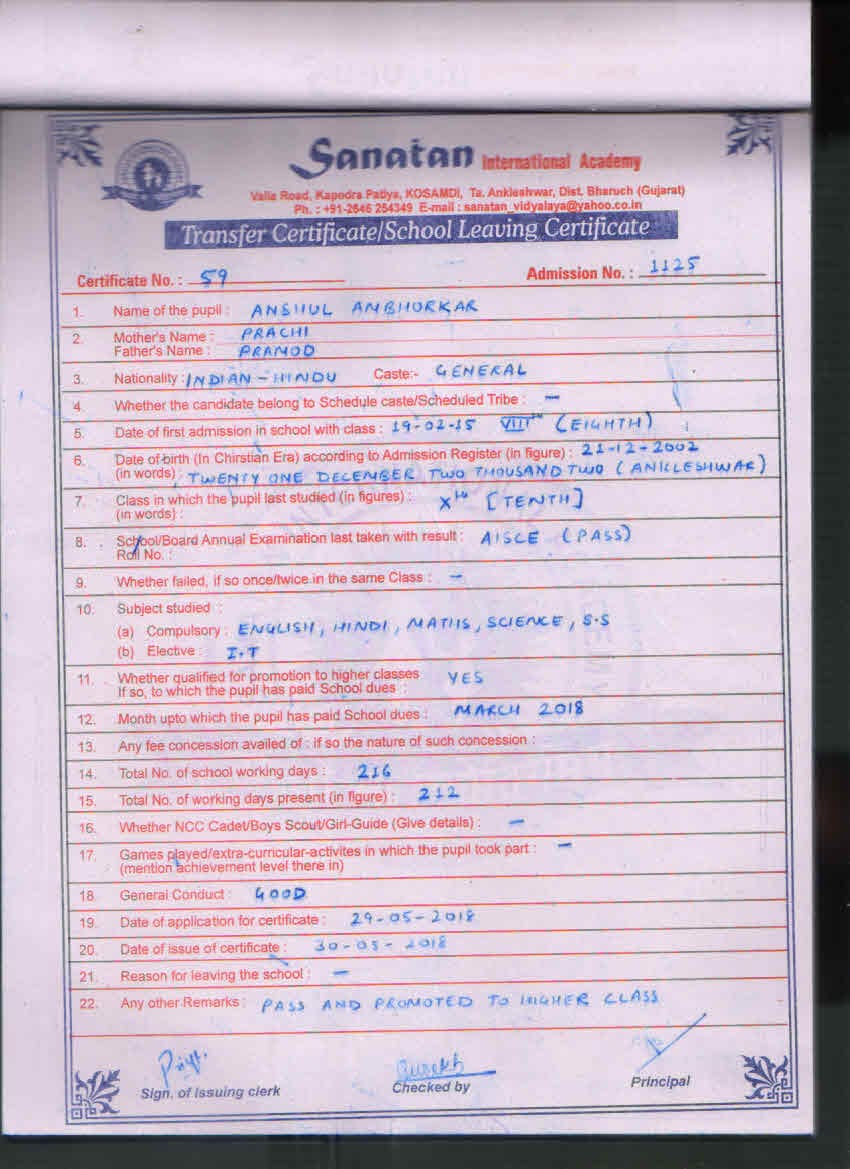 Sanatan International Academy
Valia Road, Kapodra Patiya, KOSAMDI, Ta. Ankleshwar, Dist. Bharuch (Gujarat)
Ph. : +91-2646 254349 E-mail : sanatan_vidyalaya@yahoo.co.in
Transfer Certificate/School Leaving Certificate
Certificate No. : 59 Admission No. : 1125
1. Name of the pupil : ANSHUL AMBHORKAR
2. Mother's Name : PRACHI
Father's Name : PRAMOD
3. Nationality : INDIAN - HINDU Caste:- GENERAL
4. Whether the candidate belong to Schedule caste/Scheduled Tribe : —
5. Date of first admission in school with class : 19-02-15 VIIIth (EIGHTH)
6. Date of birth (In Chirstian Era) according to Admission Register (in figure) : 21-12-2002
(in words) : TWENTY ONE DECEMBER TWO THOUSAND TWO (ANKLESHWAR)
7. Class in which the pupil last studied (in figures) : Xth [TENTH]
(in words) :
8. School/Board Annual Examination last taken with result : AISCE (PASS)
Roll No. :
9. Whether failed, if so once/twice in the same Class : —
10. Subject studied :
(a) Compulsory : ENGLISH, HINDI, MATHS, SCIENCE, S.S
(b) Elective : I.T
11. Whether qualified for promotion to higher classes YES
If so, to which the pupil has paid School dues :
12. Month upto which the pupil has paid School dues : MARCH 2018
13. Any fee concession availed of : if so the nature of such concession :
14. Total No. of school working days : 216
15. Total No. of working days present (in figure) : 212
16. Whether NCC Cadet/Boys Scout/Girl-Guide (Give details) : —
17. Games played/extra-curricular-activites in which the pupil took part : —
(mention achievement level there in)
18. General Conduct : GOOD
19. Date of application for certificate : 29-05-2018
20. Date of issue of certificate : 30-05-2018
21. Reason for leaving the school : —
22. Any other Remarks : PASS AND PROMOTED TO HIGHER CLASS
Sign. of Issuing clerk Checked by Principal